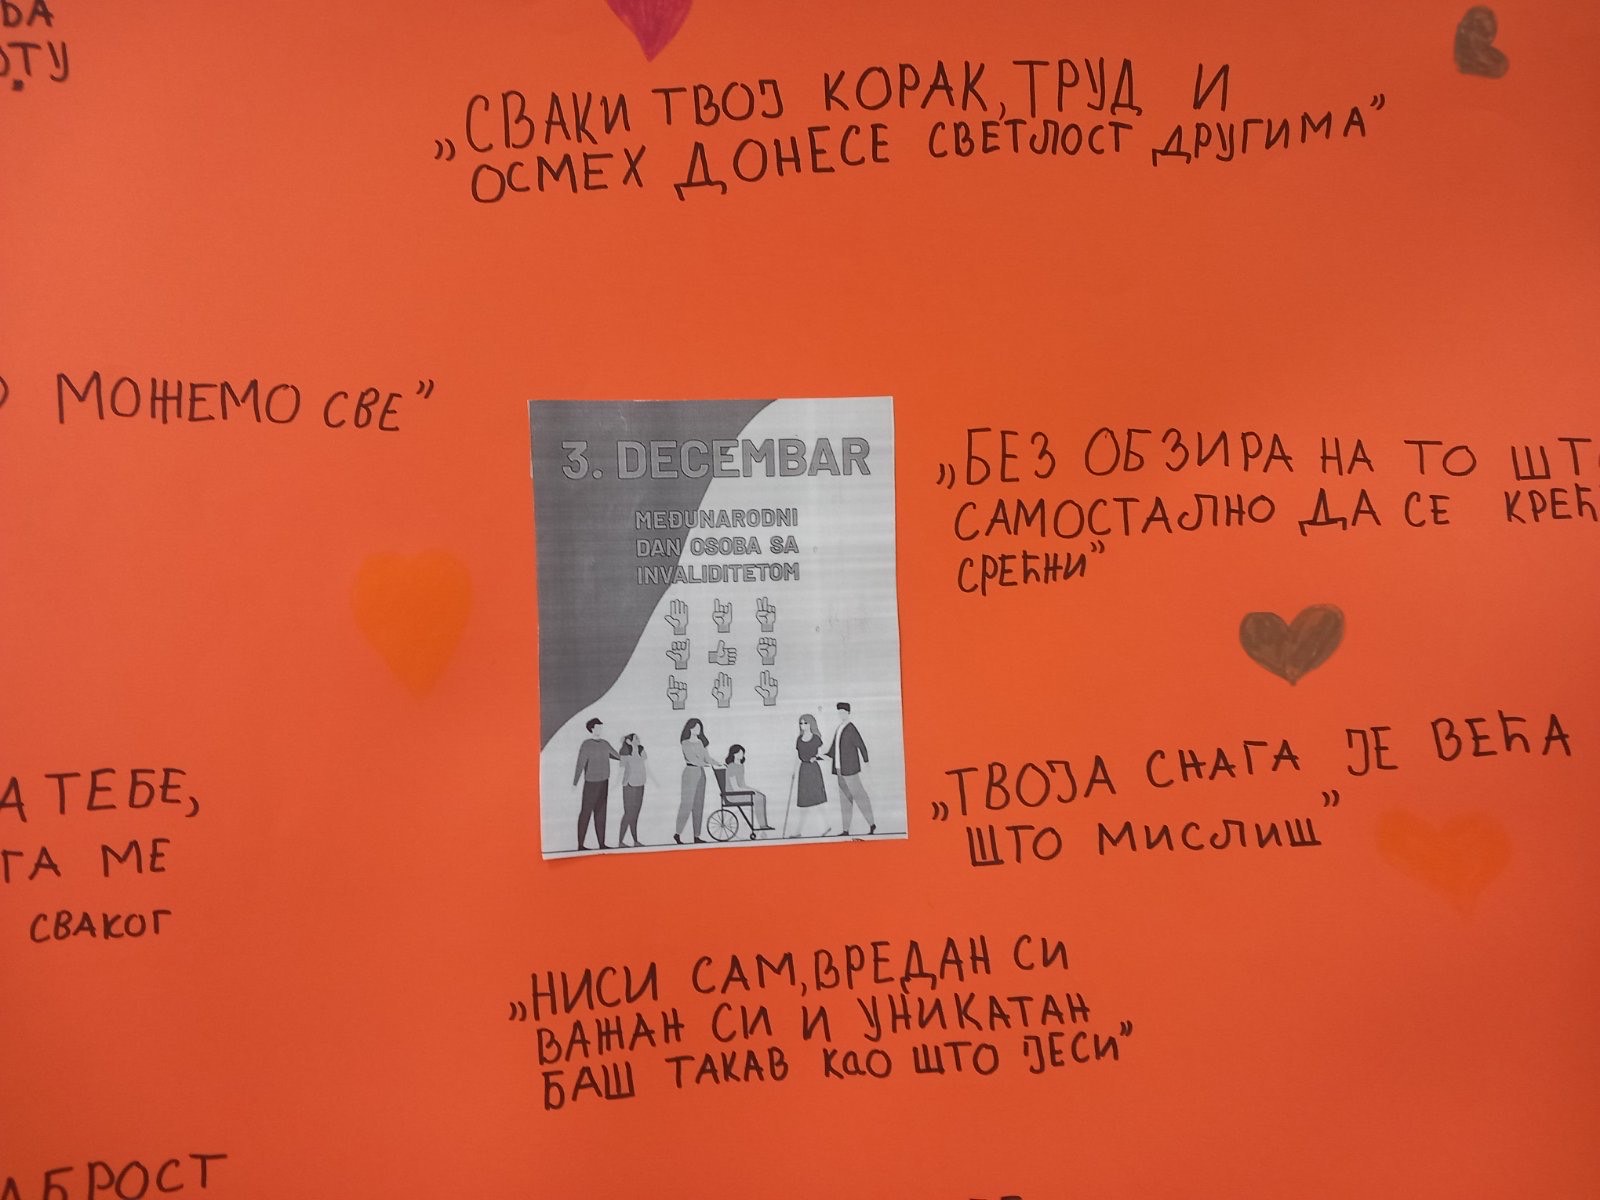 „СВАКИ ТВОЈ КОРАК, ТРУД И
ОСМЕХ ДОНЕСЕ СВЕТЛОСТ ДРУГИМА”
МОЖЕМО СВЕ”
3. DECEMBAR
MEĐUNARODNI
DAN OSOBA SA
INVALIDITETOM
„БЕЗ ОБЗИРА НА ТО
САМОСТАЛНО ДА СЕ
СРЕЋНИ”
„ТВОЈА СНАГА ЈЕ ВЕЋА
ШТО МИСЛИШ”
ТЕБЕ,
МЕ
СВАКОГ
„НИСИ САМ, ВРЕДАН СИ
ВАЖАН СИ И УНИКАТАН
БАШ ТАКАВ КаО ШТО ЈЕСИ”